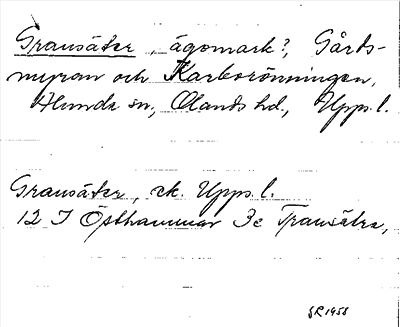 Gransäter, ägomark?, Gårds-
myran och Karborönningen,
Alunda sn, Olands hd., Upps. l.
Gransäter, ek. Upps. l.
12 I Östhammar 3c Transätra,
GR 1958